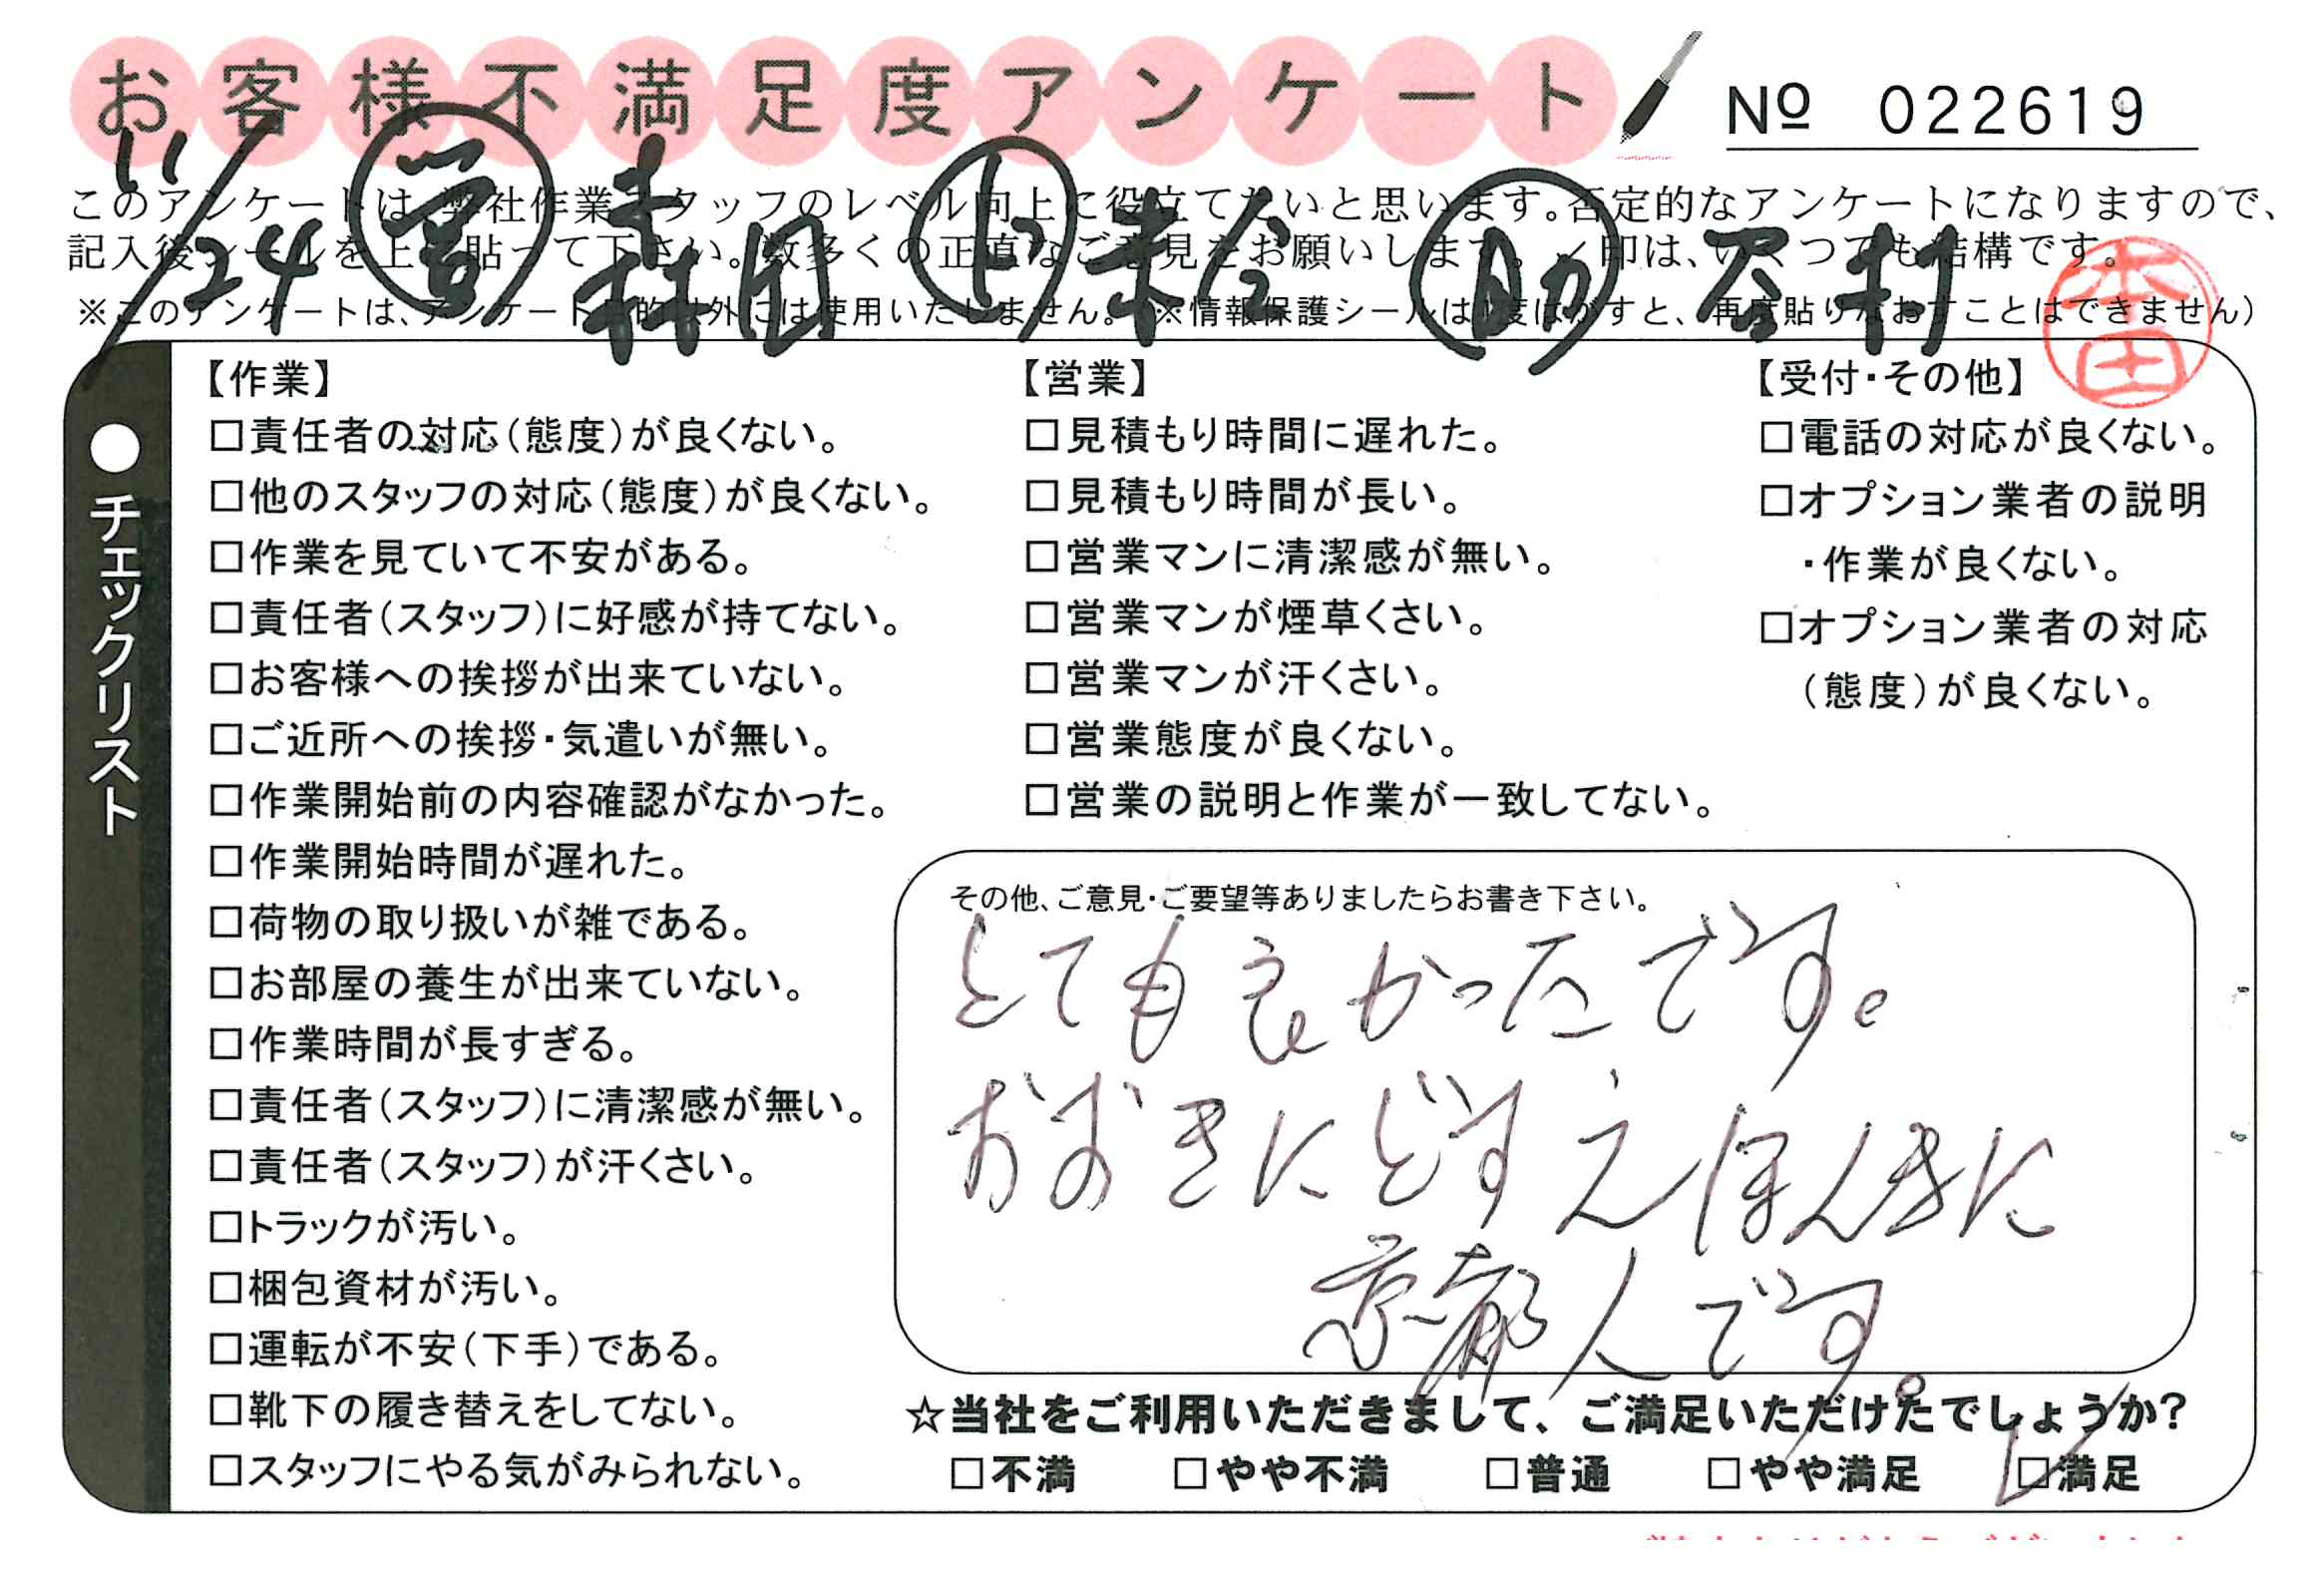 お客様不満足度アンケート
Nº 022619
11/24 営 森田 ド 米谷 助 谷村
このアンケートは、弊社作業スタッフのレベル向上に役立てたいと思います。否定的なアンケートになりますので、
記入後シールを上に貼って下さい。数多くの正直なご意見をお願いします。✓印は、いくつでも結構です。
※このアンケートは、アンケート目的以外には使用いたしません。(※情報保護シールは1度はがすと、再度貼りなおすことはできません)
本田
●チェックリスト
【作業】
□責任者の対応(態度)が良くない。
□他のスタッフの対応(態度)が良くない。
□作業を見ていて不安がある。
□責任者(スタッフ)に好感が持てない。
□お客様への挨拶が出来ていない。
□ご近所への挨拶・気遣いが無い。
□作業開始前の内容確認がなかった。
□作業開始時間が遅れた。
□荷物の取り扱いが雑である。
□お部屋の養生が出来ていない。
□作業時間が長すぎる。
□責任者(スタッフ)に清潔感が無い。
□責任者(スタッフ)が汗くさい。
□トラックが汚い。
□梱包資材が汚い。
□運転が不安(下手)である。
□靴下の履き替えをしてない。
□スタッフにやる気がみられない。
【営業】
□見積もり時間に遅れた。
□見積もり時間が長い。
□営業マンに清潔感が無い。
□営業マンが煙草くさい。
□営業マンが汗くさい。
□営業態度が良くない。
□営業の説明と作業が一致してない。
【受付・その他】
□電話の対応が良くない。
□オプション業者の説明
・作業が良くない。
□オプション業者の対応
(態度)が良くない。
その他、ご意見・ご要望等ありましたらお書き下さい。
とても良かったです。
おおきにどすえほんまに
京都人です。
☆当社をご利用いただきまして、ご満足いただけたでしょうか?
□不満 □やや不満 □普通 □やや満足 ☑満足